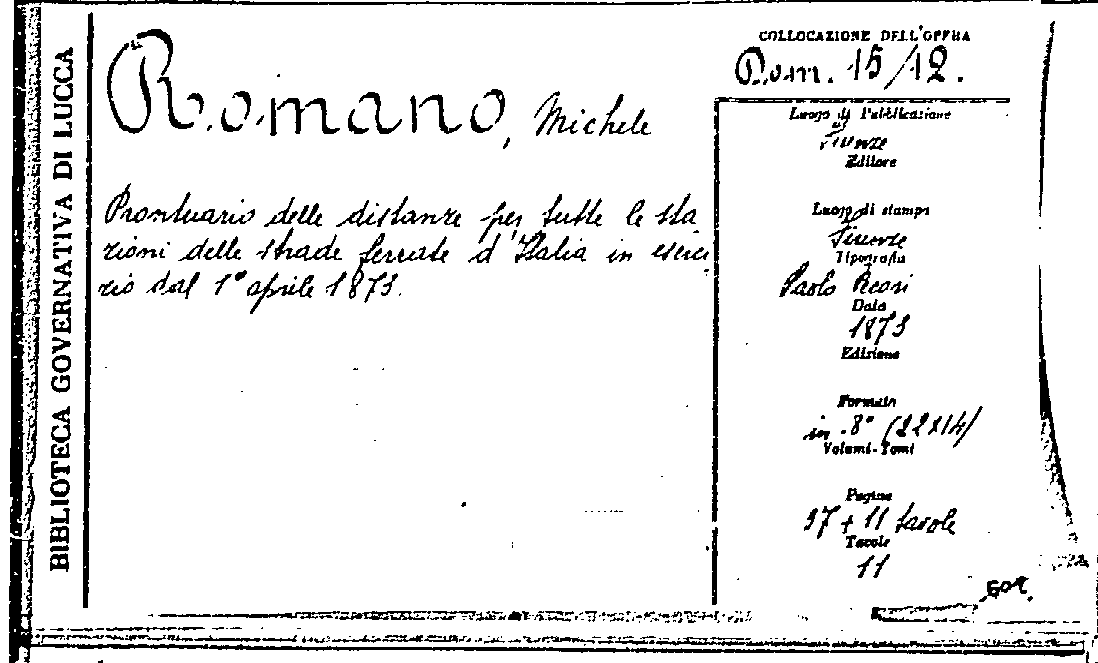 BIBLIOTECA GOVERNATIVA DI LUCCA
Romano, Michele
Prontuario delle distanze per tutte le sta
zioni delle strade ferrate d'Italia in eserci
zio dal 1° aprile 1873.
COLLOCAZIONE DELL'OPERA
Dom. 15/12.
Luogo di Pubblicazione
Firenze
Editore
Luogo di stampa
Firenze
Tipografia
Paolo
Data
1873
Edizione
Formato
in-8° (22x14)
Volumi-Tomi
Pagine
37 + 11 tavole
Tavole
11